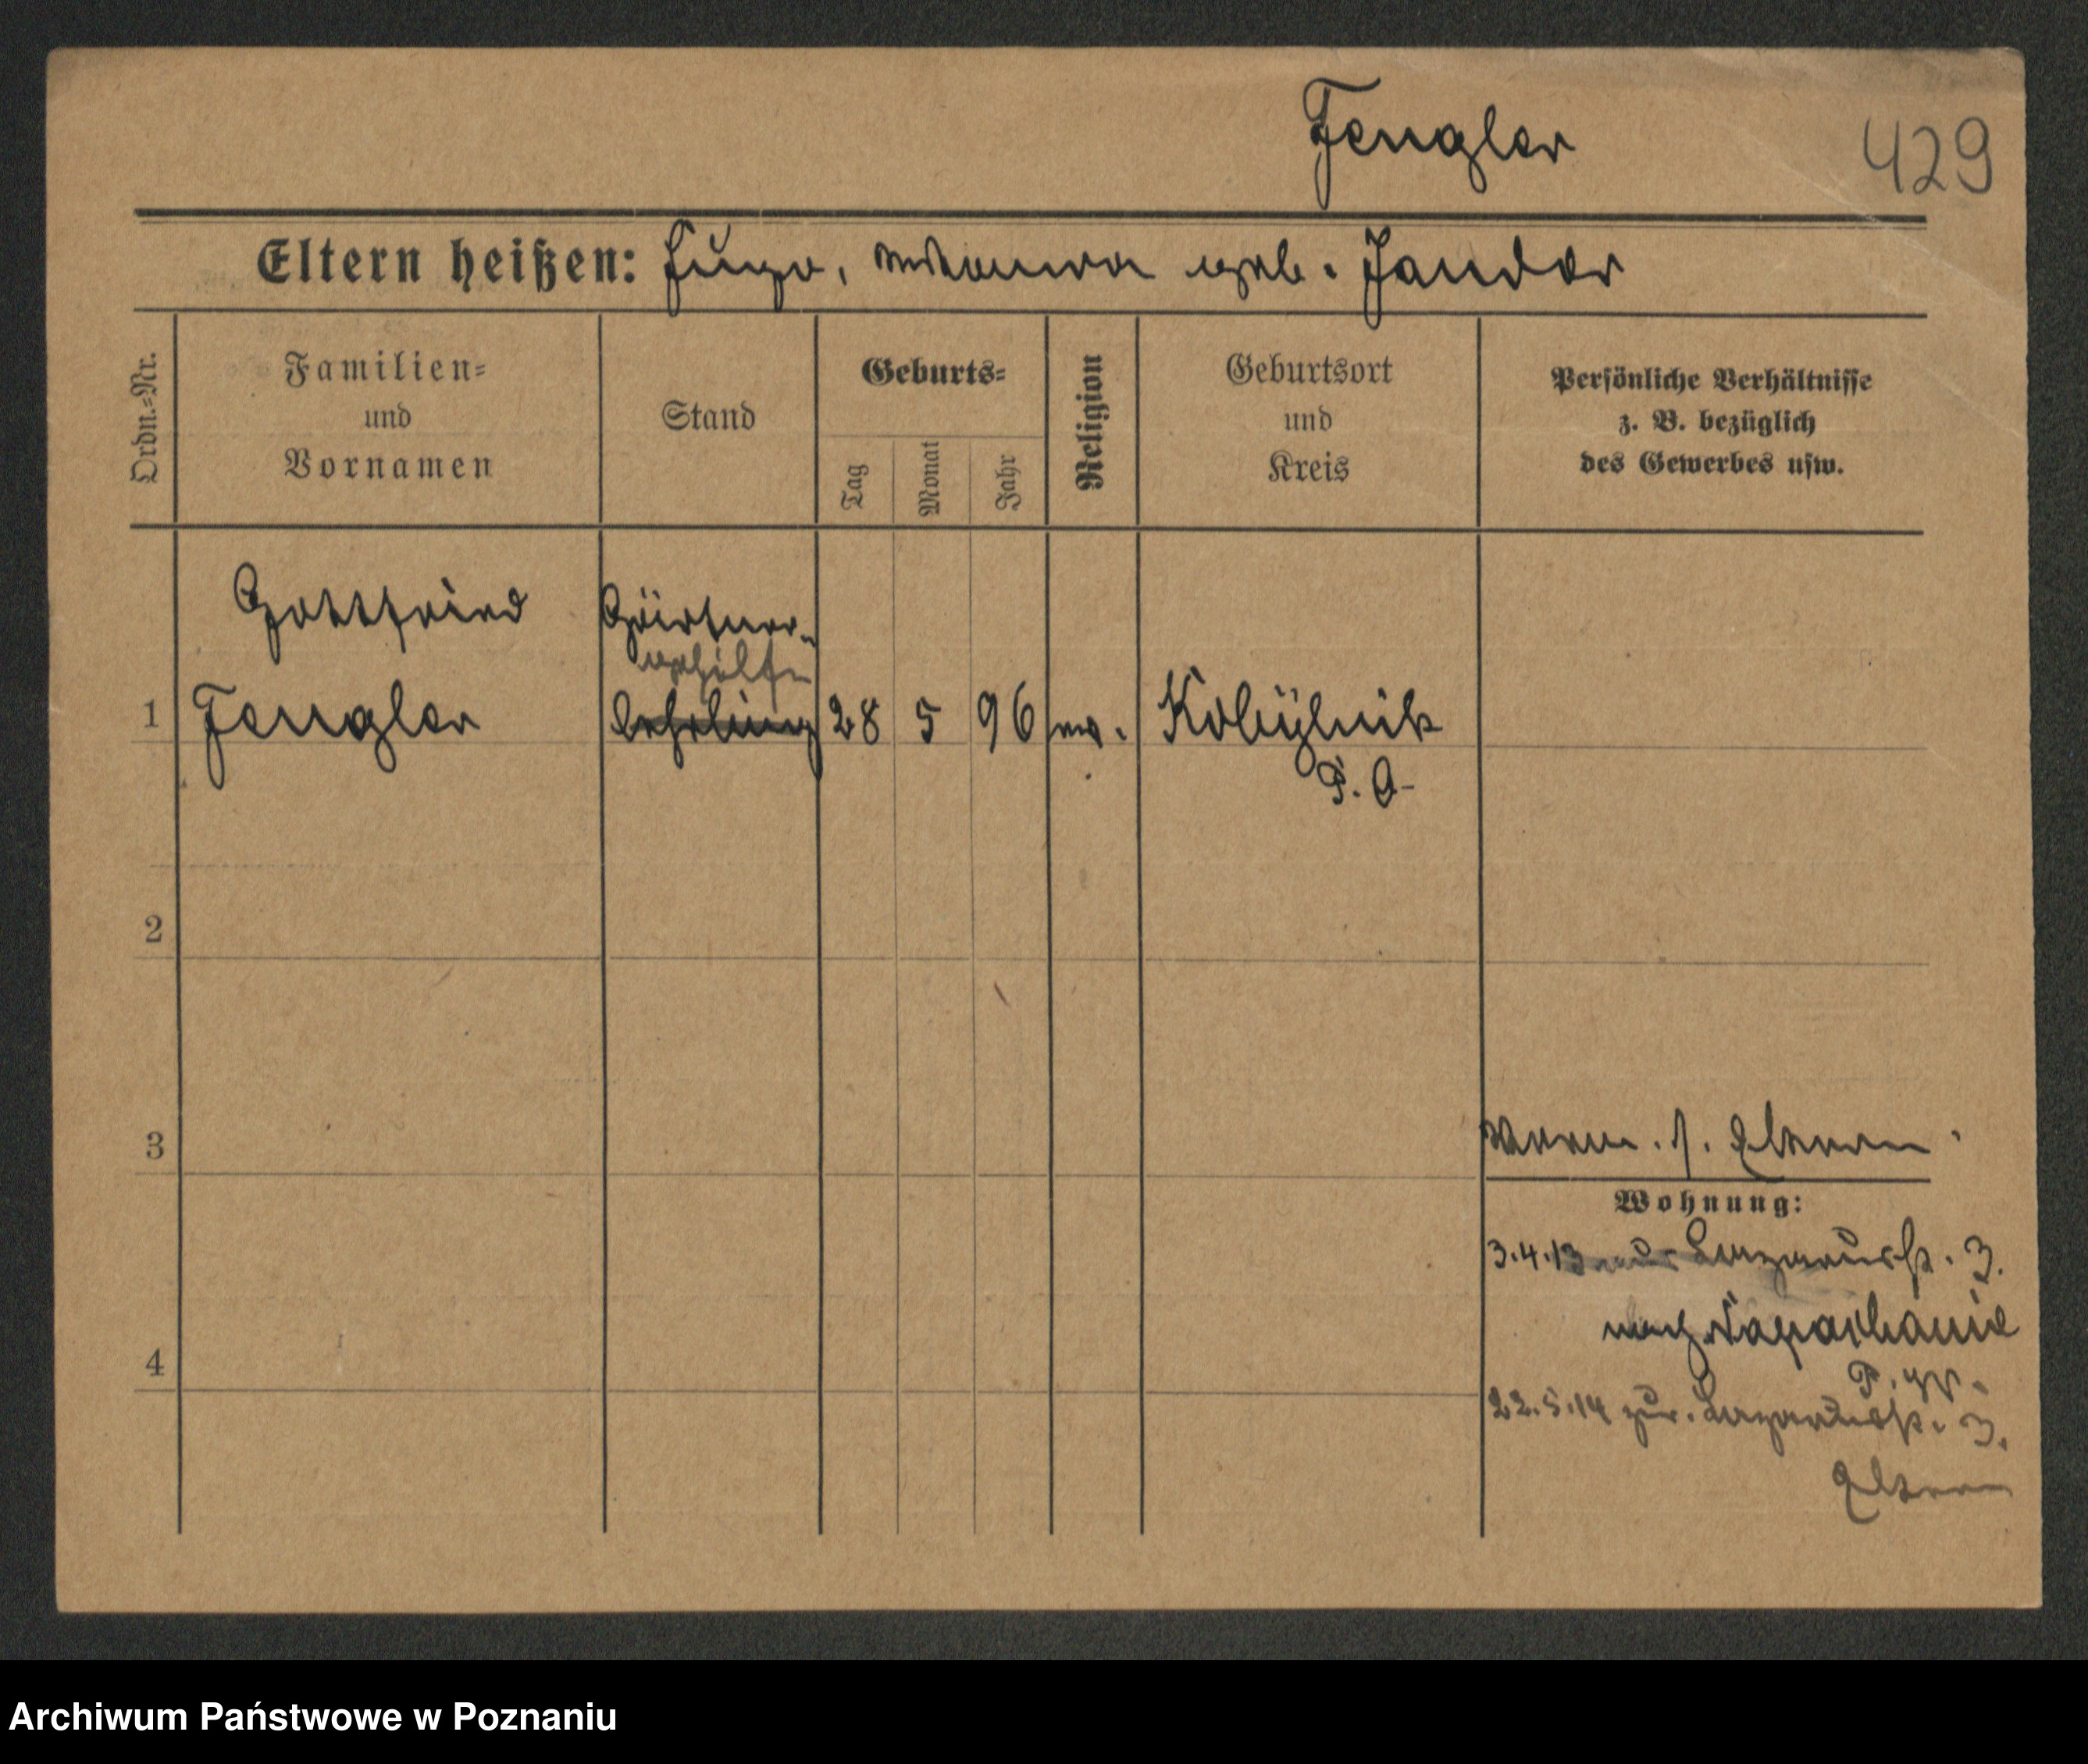 Fengler
429
Eltern heißen: Hugo, geb. Jander
Ordn.=Nr.
Familien=
und
Vornamen
Stand
Geburts=
Tag
Monat
Jahr
Religion
Geburtsort
und
Kreis
Persönliche Verhältnisse
z. B. bezüglich
des Gewerbes usw.
Gottfried
Gärtner-
gehilfe
1 Fengler lehrling 28 5 96 ev. Kobylnik
P. O-
2
3
Verm. s. Eltern
Wohnung:
3.4.13 aus Lazarusstr. 3.
nach
P. W.
4
22.5.14 zur. Lazarusstr. 3.
Eltern
Archiwum Państwowe w Poznaniu